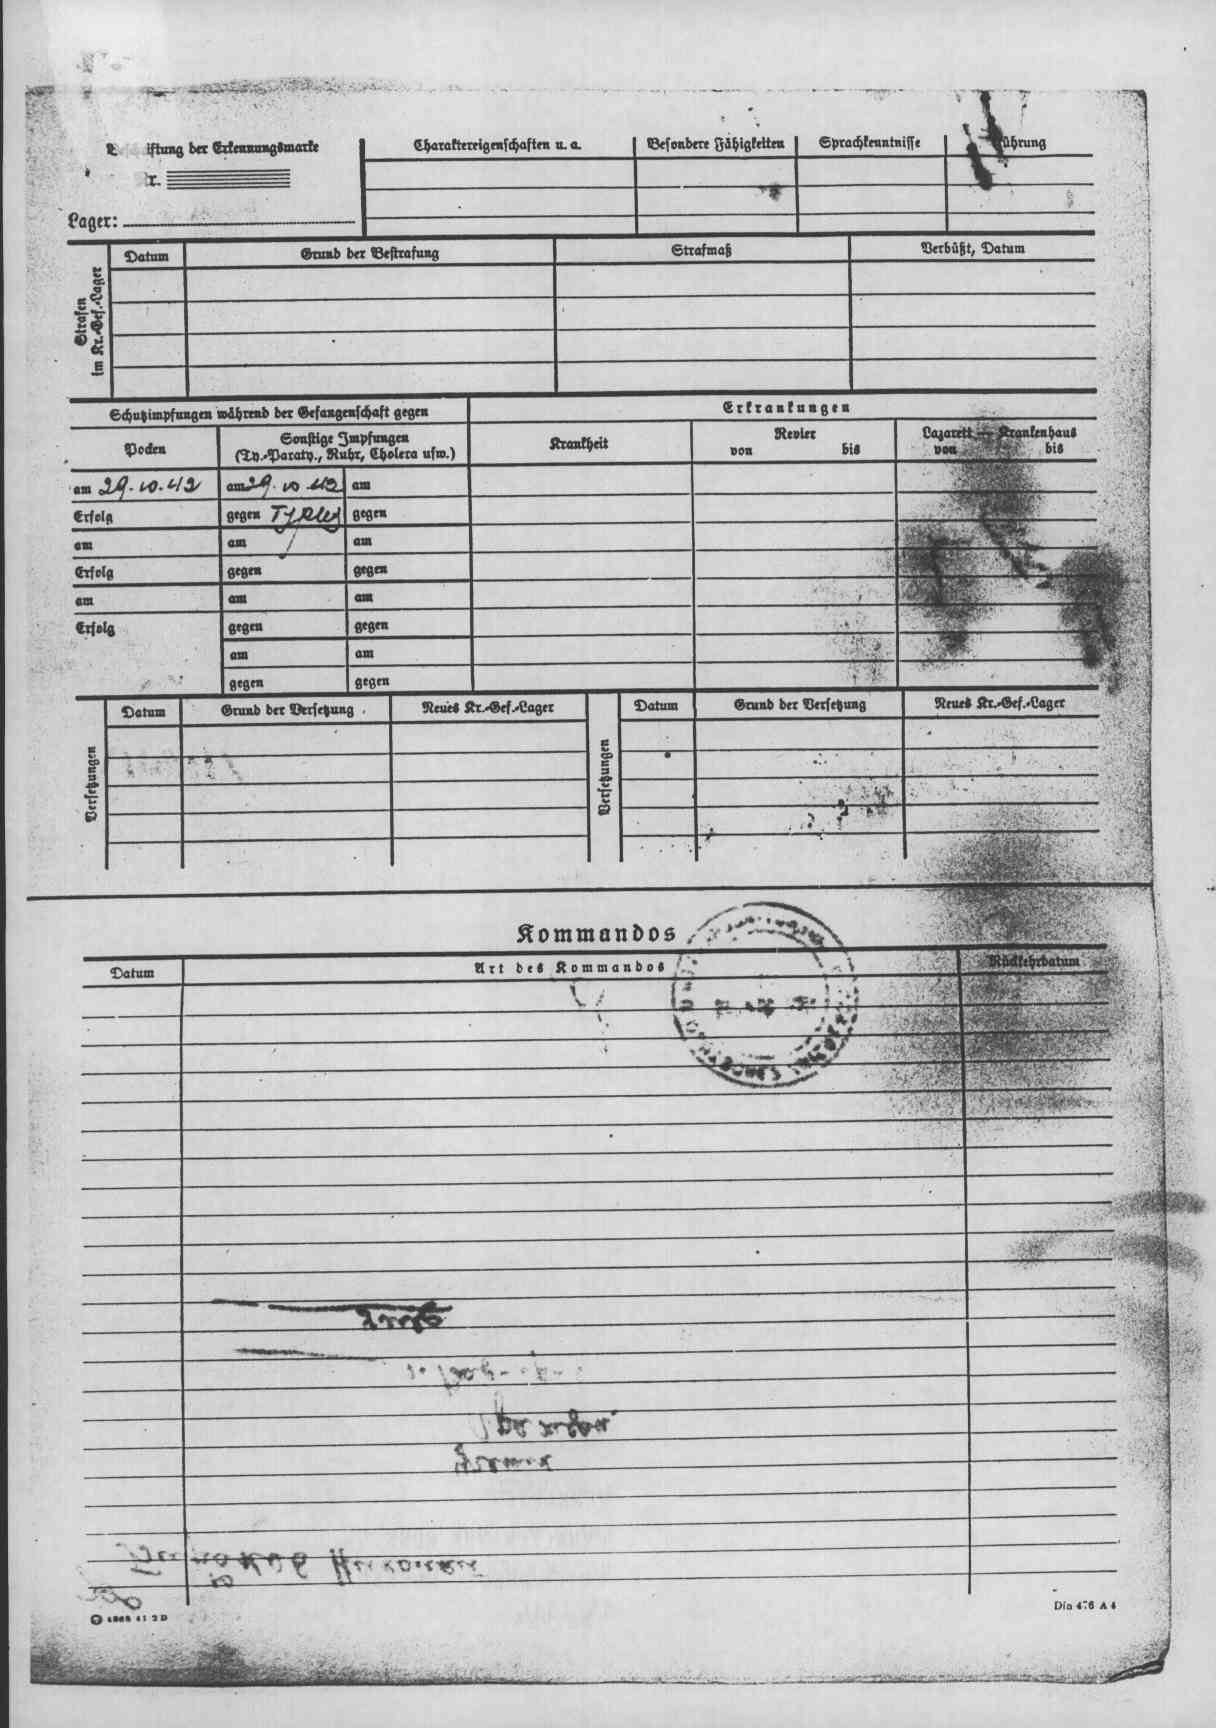 iftung der Erkennungsmarke
Charaktereigenschaften u. a.
Besondere Fähigkeiten
Sprachkenntnisse
ührung
r.
Lager:
Strafen im Kr.-Gef.-Lager
Datum
Grund der Bestrafung
Strafmaß
Verbüßt, Datum
Schutzimpfungen während der Gefangenschaft gegen
Erkrankungen
Pocken
Sonstige Impfungen
(Ty.-Paraty., Ruhr, Cholera usw.)
Krankheit
Revier
von bis
Lazarett — Krankenhaus
von bis
am 29.10.42 am 29.10.42 am
Erfolg gegen Typhus gegen
am am am
Erfolg gegen gegen
am am am
Erfolg gegen gegen
am am
gegen gegen
Versetzungen
Datum
Grund der Versetzung
Neues Kr.-Gef.-Lager
Versetzungen
Datum
Grund der Versetzung
Neues Kr.-Gef.-Lager
Kommandos
Datum
Art des Kommandos
Rückkehrdatum
Din 476 A 4